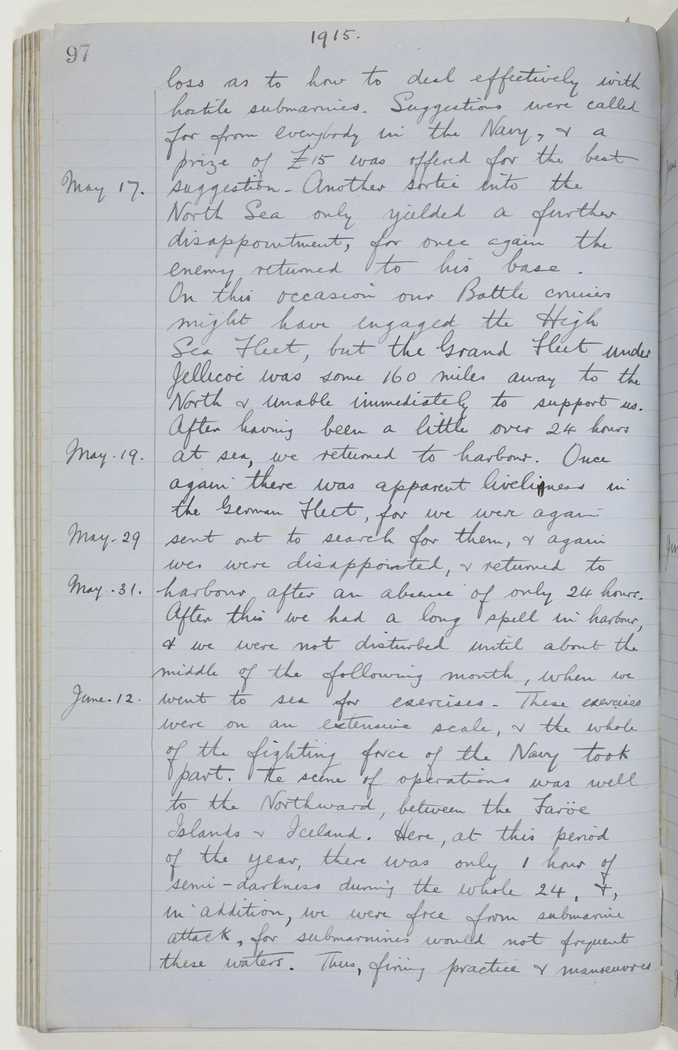 97
1915.
loss as to how to deal effectively with
hostile submarines. Suggestions were called
for from everybody in the Navy, & a
prize of £15 was offered for the best
May 17. suggestion - Another sortie into the
North Sea only yielded a further
disappointment, for once again the
enemy returned to his base.
On this occasion our Battle cruisers
might have engaged the High
Sea Fleet, but the Grand Fleet under
Jellicoe was some 160 miles away to the
North & unable immediately to support us.
After having been a little over 24 hours
May. 19. at sea, we returned to harbour. Once
again there was apparent liveliness in
the German Fleet, for we were again
May-29 sent out to search for them, & again
wes were disappointed, & returned to
May. 31. harbour after an absence of only 24 hours.
After this we had a long spell in harbour,
& we were not disturbed until about the
middle of the following month, when we
June. 12. went to sea for exercises - These exercises
were on an extensive scale, & the whole
of the fighting force of the Navy took
part. The scene of operations was well
to the Northward, between the Faröe
Islands & Iceland. Here, at this period
of the year, there was only 1 hour of
semi-darkness during the whole 24, &,
in addition, we were free from submarine
attack, for submarines would not frequent
these waters. Thus, firing practice & manoeuvres